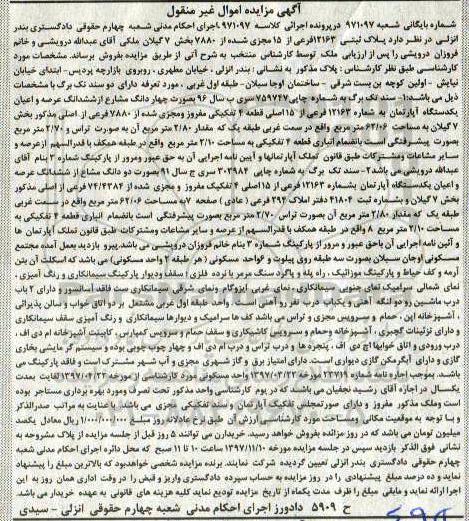 آگهی مزایده اموال غیر منقول
شماره بایگانی شعبه ۹۷۱۰۹۷ درپرونده اجرائی کلاسه ۹۷۱۰۹۷ اجرای احکام مدنی شعبه چهارم حقوقی دادگستری بندر
انزلی در نظر دارد پلاک ثبتی ۱۲۱۶۳فرعی از ۱۵ مجزی شده از ۷۸۸۰ بخش ۷ گیلان ملکی آقای عبدالله درویشی و خانم
فروزان درویشی را پس از ارزیابی ملک توسط کارشناس منتخب به شرح آتی از طریق مزایده بفروش برساند. مشخصات مورد
کارشناسی طبق نظر کارشناس: پلاک مذکور به نشانی: بندر انزلی، خیابان مطهری، روبروی بازارچه پردیس- ابتدای خیابان
نیایش - اولین کوچه بن بست شرقی - ساختمان اوجا سبلان- طبقه اول غربی. مورد تعرفه دارای دو سند تک برگ با مشخصات
ذیل می‌باشد:۱- سند تک برگ به شماره چاپی ۷۵۹۷۴۷ سری ب سال ۹۶ بصورت چهار دانگ مشاع از ششدانگ عرصه و اعیان
یکدستگاه آپارتمان به شماره ۱۲۱۶۳ فرعی از ۱۵اصلی قطعه ۴ تفکیکی مفروز ومجزی شده از ۷۸۸۰ فرعی از اصلی مذکور بخش
۷ گیلان به مساحت ۶۲/۰۶ متر مربع واقع در سمت غربی طبقه یک که مقدار ۲/۸۰ متر مربع آن به صورت تراس و ۲/۷۰ متر مربع
بصورت پیشرفتگی است بانضمام انباری قطعه ۴ تفکیکی به مساحت ۲/۱۰ متر مربع واقع در طبقه همکف با قدرالسهم ازعرصه و
سایر مشاعات ومشترکات طبق قانون تملک آپارتمانها و آیین نامه اجرایی آن به حق عبور ومرور از پارکینگ شماره ۳ بنام آقای
عبدالله درویشی می‌باشد۲- سند تک برگ به شماره چاپی ۳۰۲۹۸۴ سری ج سال ۹۱ بصورت دو دانگ مشاع از ششدانگ عرصه
و اعیان یکدستگاه آپارتمان بشماره ۱۲۱۶۳ فرعی از ۱۵ اصلی ۴ تفکیک مفروز و مجزی شده از ۷۴/۴۳۸۴ فرعی از اصلی مذکور
بخش ۷ گیلان و بشماره ثبت ۴۱۸۰۴ دفتر املاک ۲۹۴ فرعی (عادی) صفحه ۷به مساحت ۶۲/۰۶ متر مربع واقع در سمت غربی
طبقه یک که مقدار ۲/۸۰ متر مربع آن بصورت تراس و ۲/۷۰ متر مربع بصورت پیشرفتگی است بانضمام انباری قطعه ۴ تفکیکی به
مساحت ۲/۱۰ متر مربع واقع در طبقه همکف با قدرالسهم از عرصه و سایر مشاعات ومشترکات طبق قانون تملک آپارتمان ها
و آئین نامه اجرایی آن باحق عبور و مرور از پارکینگ شماره ۳ بنام خانم فروزان درویشی می باشد.پیرو بازدید بعمل آمده مجتمع
مسکونی اوجان سبلان بصورت سه طبقه روی پیلوت و ۶واحد مسکونی (هر طبقه ۲ واحد مسکونی) می باشد که اسکلت آن بتن
آرمه و کف حیاط و پارکینگ موزائیک، راه پله و پاگرد سنگ مرمر با نرده فلزی) سقف ودیوار پارکینگ سیمانکاری و رنگ آمیزی،
نمای شمالی سرامیک نمای جنوبی سیمانکاری، نمای غربی ایزوگام ونمای شرقی سیمانکاری ست فاقد آسانسور و دارای ۲ باب
درب ماشین رو دولنگه آهنی ویکباب درب نفر رو آهنی می باشد. واحد طبقه اول غربی مشتمل بر دو اتاق خواب و سالن پذیرائی
، آشپزخانه اپن، حمام و سرویس مجزی و تراس می باشد کف ها سرامیک و دیوارها سیمانکاری و رنگ آمیزی سقف سیمانکاری
و دارای تزئینات گچبری، آشپزخانه وحمام و سرویس کاشیکاری و سقف حمام و سرویس کمپارس، کابینت آشپزخانه ام دی اف،
درب ورودی و اتاق خوابها اچ دی اف، پنجره ها و درب تراس و درب ام دی اف و چهار چوب چوبی بوده و سیستم گرمایشی بخاری
گازی و دارای آبگرمکن گازی دیواری است. دارای امتیاز برق و گاز شهری مجزی و آب شهر مشترک است و فاقد پارکینگ می
باشد. بموجب اجاره نامه شماره ۲۳۷۱۹ مورخه ۱۳۹۷/۰۳/۲۲ واحد مسکونی مورد کارشناسی از مورخه ۱۳۹۷/۰۴/۲۲ لغایت بمدت
یکسال در اجاره آقای رشید نجفیان می باشد که در یوم کارشناسی واحد مذکور تحت تصرف ومورد بهره برداری مستاجر بوده
است وملک مذکور مفروز و دارای صورتمجلس تفکیک آپارتمان و سند تفکیکی مجزی می باشد. با عنایت به مراتب صدرالذکر
و با توجه به موقعیت مکانی و مساحت مورد کارشناسی ارزش آن طبق نرخ عادلانه روز مبلغ ۱/۰۰۰/۰۰۰/۰۰۰ ریال معادل یکصد
میلیون تومان می باشد که در روز مزایده بفروش خواهد رسید. خریداران می توانند ۵ روز قبل از جلسه مزایده از پلاک مشروحه به
نشانی فوق الذکر بازدید سپس در جلسه مزایده مورخه ۱۳۹۷/۱۱/۱۰ ساعت ۱۰ تا ۱۱ صبح که محل دائره اجرای احکام مدنی شعبه
چهارم حقوقی دادگستری بندر انزلی تعیین گردیده شرکت نمایند. برنده مزایده شخصی خواهدبود که بالاترین مبلغ را پیشنهاد
نماید و ده درصد مبلغ پیشنهادی را در روز مزایده به حساب سپرده دادگستری واریز و قبض را در وقت اداری همان روز به این
اجرا ارائه نماید و مابقی مبلغ را ظرف مدت یکماه از تاریخ مزایده تودیع نماید کلیه هزینه های قانونی به عهده خریدار می باشد.
ح ۵۹۰۹ دادورز اجرای احکام مدنی شعبه چهارم حقوقی انزلی - سیدی